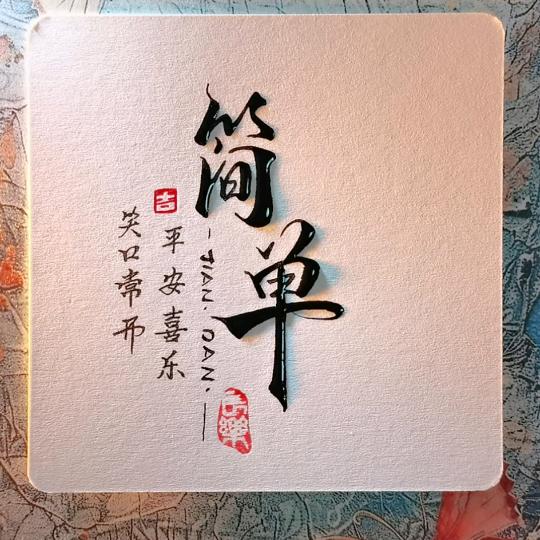 简单
- JIAN. DAN. —
吉
平安喜乐
笑口常开
樂